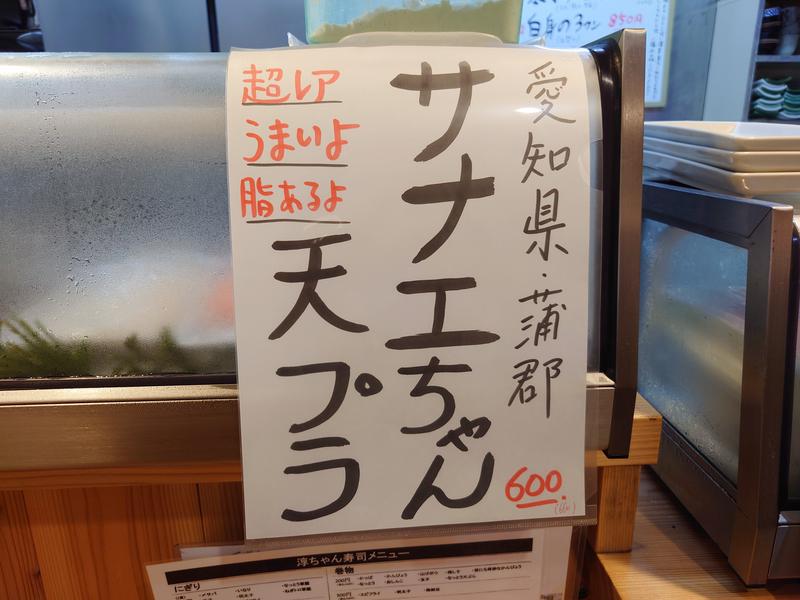 愛知県・蒲郡
サナエちゃん
天プラ
超レア
うまいよ
脂あるよ
600.
(660)
白身の3カン 850円
淳ちゃん寿司メニュー
にぎり
巻物